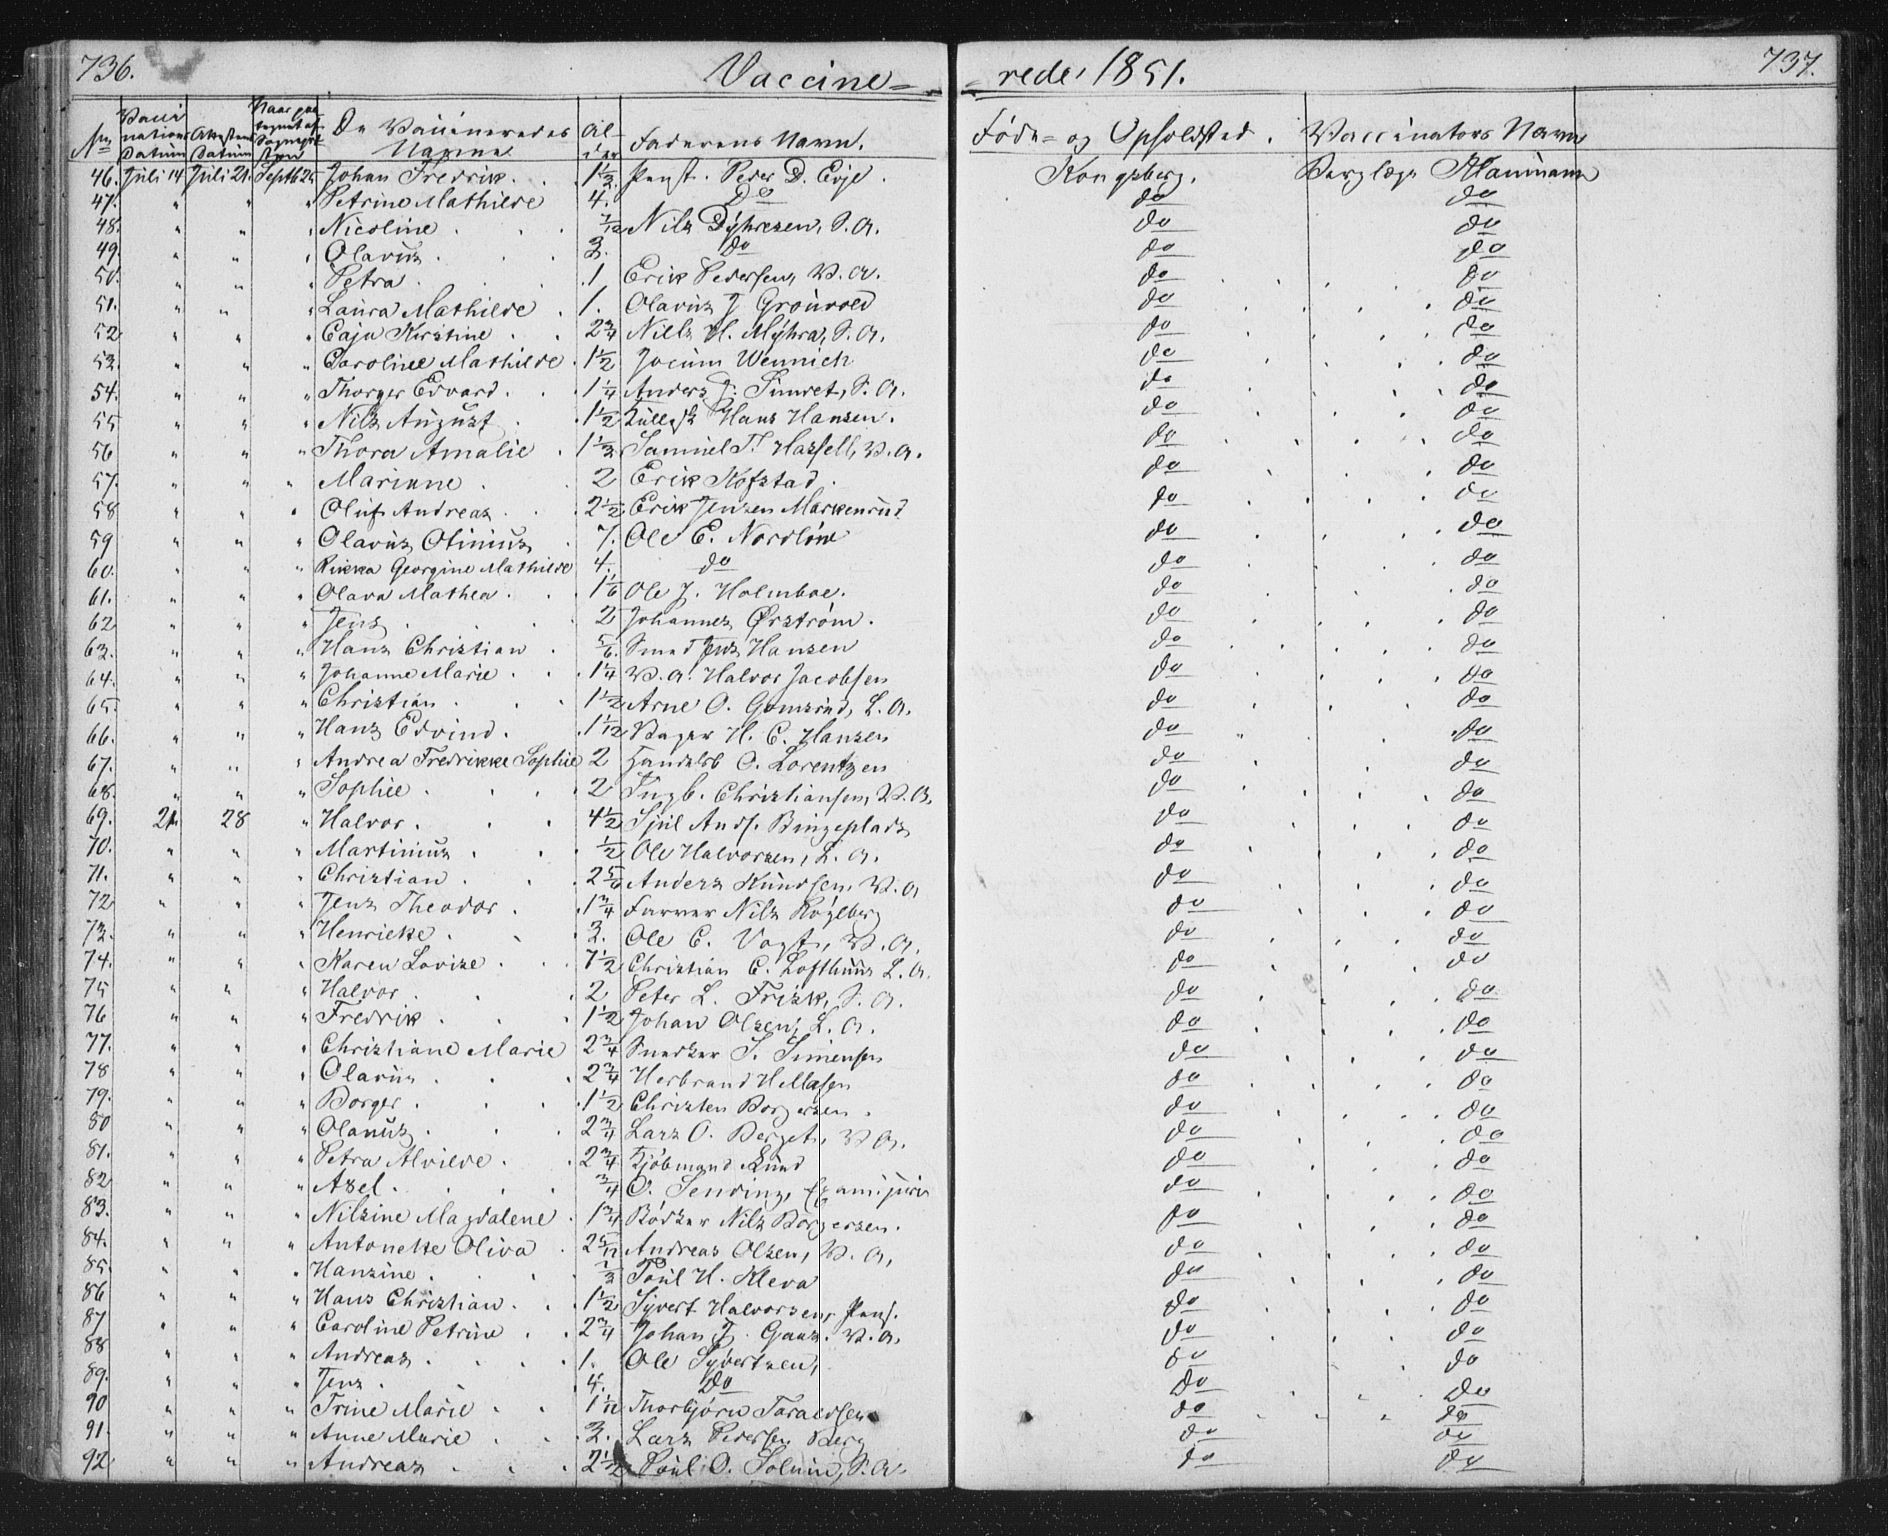 736. Vaccine= rede, 1851. 737.
No Vaccinations Datum Datum De Vaccineredes Navne Alder Faderens Navn. Føde= og Opholdsted. Vaccinators Navn
46. Juli 14 Juli 21. Septb 25 Johan Fredrik. 1½ Penst. Peder D. Evje. Kongsberg. Berglæge
47. " " " Petrine Mathilde 4. Do do do
48. " " " Nicoline 7/12 Nils Dyhresen, S. A. do do
49. " " " Olavus 3. do do do
50. " " " Petra 1 Erik Pedersen, V. A. do do
51. " " " Laura Mathilde 1. Olavus J Grönvold do do
52 " " " Caja Kirstine 2¾ Niels H. Myhra, S. A. do do
53. " " " Caroline Mathilde 1½ Jocum Wennich do do
54. " " " Thorger Edvard 1¼ Anders J. S. A. do do
55 " " " Nils August 1½ Hans Hansen. do do
56 " " " Thora Amalie Samuel T. Hassell, V. A. do do
57. " " " Marinne 2 Erik Kofstad. do do
58 " " " Oluf Andreas 2½ Erik Jensen Markenrud do do
59 " " " Olavus Otinius 7. Ole E. Nordlöw do do
60. " " " Rikka Georgine Mathilde 4. do do do
61. " " " Olava Mathea 1⅙ Ole J. Holmboe. do do
62 " " " Jens 2 Johannes Ørström. do do
63. " " " Hans Christian ⅚ Smed Jens Hansen do do
64. " " " Johanne Marie 1¼ V. A. Halvor Jacobsen do do
65. " " " Christian 1½ Arne O. Gomsrud, L. A. do do
66. " " " Hans Edvind. 1 1/12 Bager H. C. Hansen do do
67. " " " Andrea Fredrikke Sophie 2 Handelsb O. Lorentzen do do
68. " " " Sophie 2 Ingb. Christiansen, V. A. do do
69. 21 28 " Halvor 4½ Bingeplads do do
70. " " " Martinius ½ Ole Halvorsen, L. A. do do
71. " " " Christian 2⅚ Anders Knudsen, V. A do do
72 " " " Jens Theodor 1¾ Farver Nils Röglberg do do
73. " " " Henrikke 3. Ole C. Vogt, V. A. do do
74. " " " Karen Lovise 7½ Christian C. Lofthuus L. A. do do
75 " " " Halvor 2 Peter L. Frisk, S. A. do do
76 " " " Fredrik 1½ Johan Olsen, L. A. do do
77. " " " Christiane Marie 2¾ Snedker S. Simensen do do
78 " " " Olavus 2¾ Herbrand Hellesen do do
79. " " " Borger 1½ Christen Borgersen. do do
80 " " " Olanus 2¾ Lars O. Berget, V A. do do
81. " " " Petra Alvilde 2¾ Kjöbmand Lund do do
82 " " " Axel ¾ O. Sending, Exami: juris do do
83. " " " Nilsine Magdalene 1¾ Bödker Nils Borgersen. do do
84. " " " Antonette Oliva 2 5/12 Andreas Olsen, V. A, do do
85. " " " Hansine Poul H. Kleva do do
86 " " " Hans Christian 1½ Syvert Halvorsen, Pens. do do
87 " " " Caroline Petrine 2¾ Johan J. Gaas. V. A. do do
88 " " " Andreas 1. Ole Syvertsen, do do
89. " " " Jens 4. Do Do Do
90 " " " Trine Marie 1 1/12 Thorbjörn Taraldsen do do
91. " " " Anne Marie 3. Lars Pedersen Berg do do
92. " " " Andreas 2½ Poul O. Solum, S. A. do do